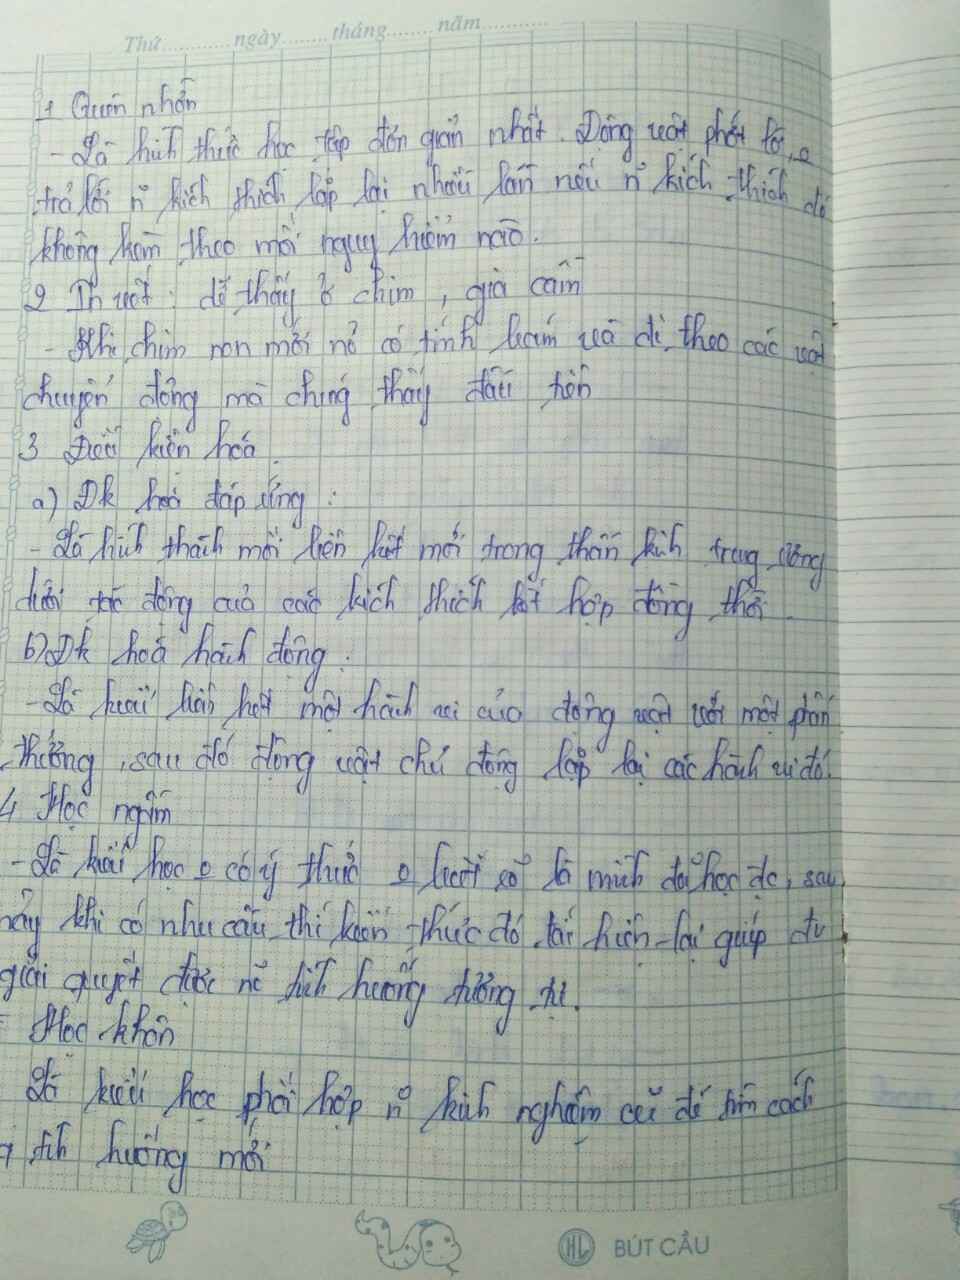 Thứ ngày tháng năm
1 Quen nhờn
- Là hình thức học tập đơn giản nhất. Động vật phớt lờ, o
trả lời n~ kích thích lặp lại nhiều lần nếu n~ kích thích đó
không kèm theo mối nguy hiểm nào.
2 In vết : dễ thấy ở chim, gia cầm
- Khi chim non mới nở có tính bám và đi theo các vật
chuyển động mà chúng thấy đầu tiên
3 Điều kiện hoá
a) Đk hoá đáp ứng :
- Là hình thành mối liên kết mới trong thần kinh trung ương
dưới tác động của các kích thích kết hợp đồng thời.
b) Đk hoá hành động :
- Là kiểu liên kết một hành vi của động vật với một phần
thưởng, sau đó động vật chủ động lặp lại các hành vi đó.
4 Học ngầm
- Là kiểu học o có ý thức o biết rõ là mình đã học đc, sau
này khi có nhu cầu thì kiến thức đó tái hiện lại giúp đv
giải quyết được n~ tình huống tương tự.
Học khôn
Là kiểu học phối hợp n~ kinh nghiệm cũ để tìm cách
tình huống mới
HL BÚT CẦU